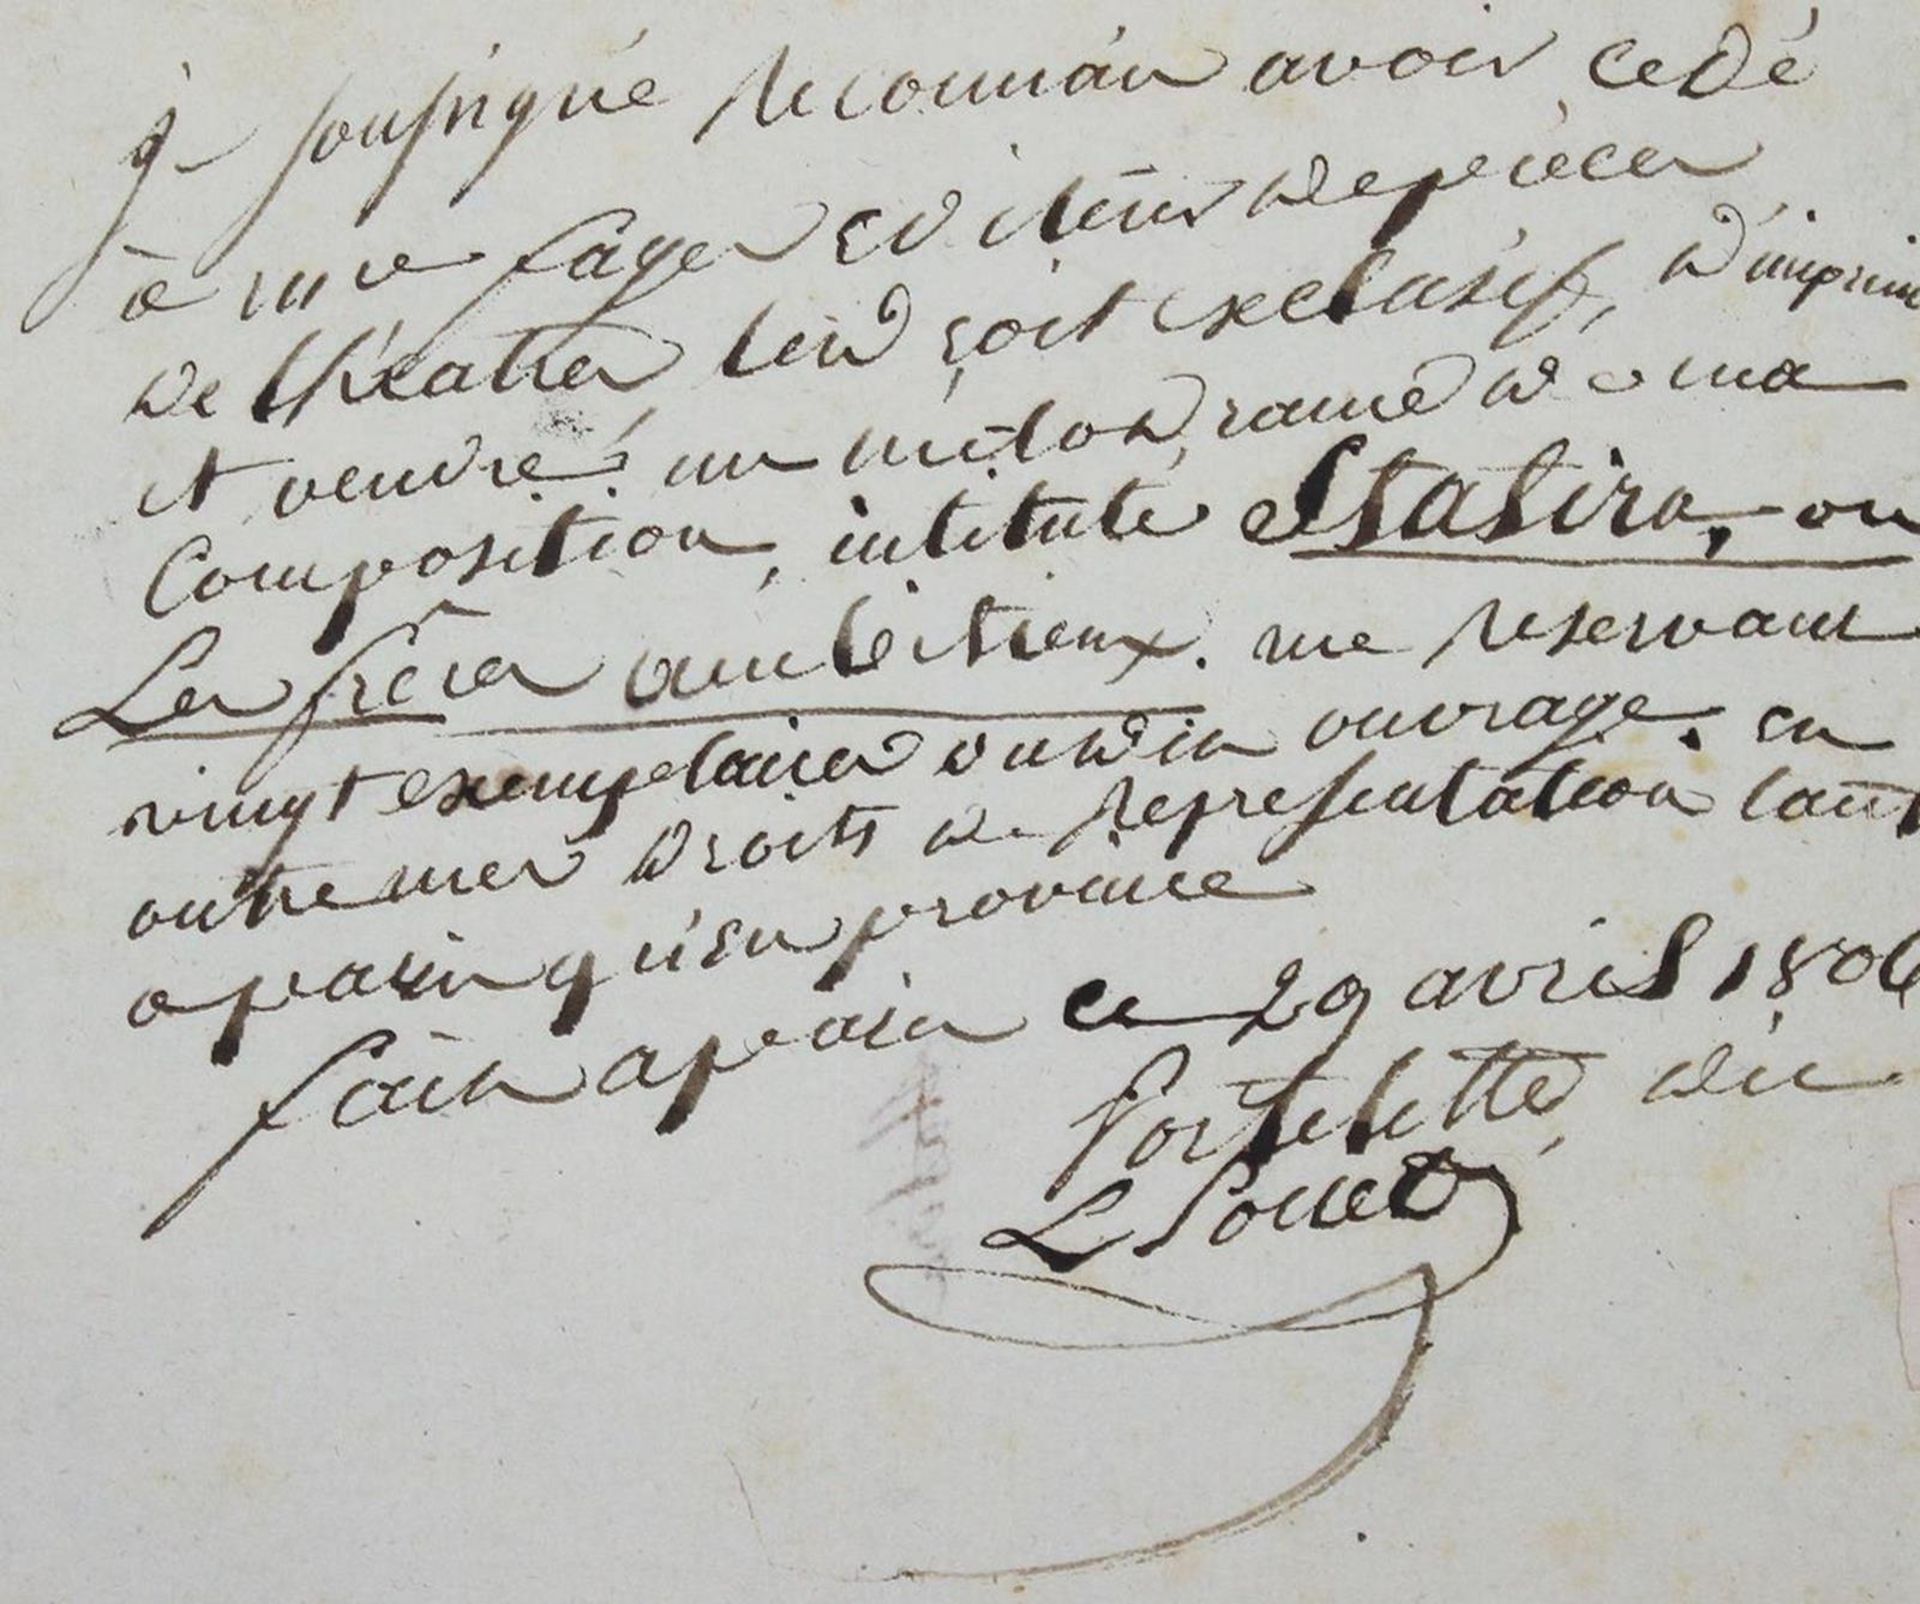 je soussigné reconnais avoir cedé
à mr fages editeur de pièces
de théatres le droit exclusif, d'imprim
et vendre un mélodrame de ma
Composition, intitulé Statira, ou
Les frères ambitieux. me reservant
vingt exemplaires dudit ouvrage. en
outre mes droits de representation tant
a paris qu'en province
fait a paris ce 29 avril 1806
Portelette dit